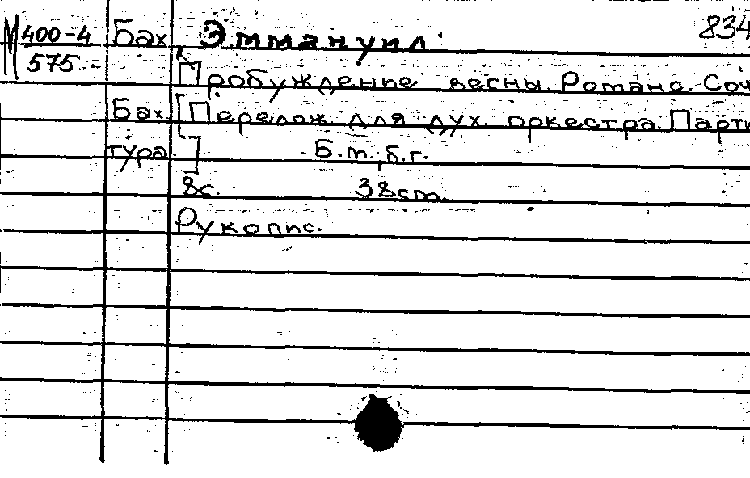 М 400-4 Бах Эммануил. 834
575 Пробуждение весны. Романс. Соч
Бах. [Перелож. для дух. оркестра. Парти
тура] Б.м., б.г.
8с. 38см.
Рукопис.